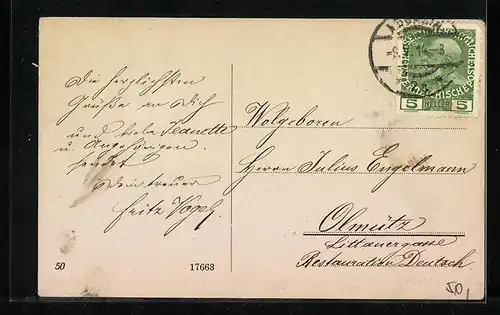 Die herzlichsten
Grüße an Dich
und liebe Jeanette
u. Angehörigen
sendet
Dein treuer
Fritz Vogel
50
17663
5 HELLER 5
Wolgeboren
Herrn Julius Engelmann
Olmütz
Littauergasse
Restauration Deutsch
50